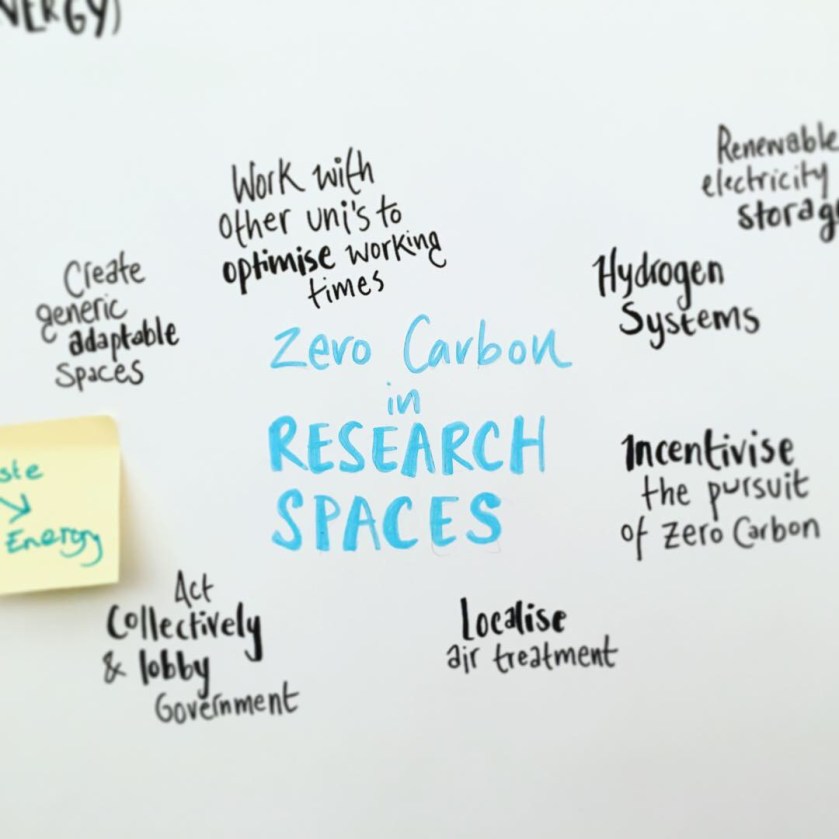 Work with
other uni's to
optimise working
times
Create
generic
adaptable
Spaces
Renewable
electricity
Hydrogen
Systems
Zero Carbon
in
RESEARCH
SPACES
Incentivise
the pursuit
of Zero Carbon
Energy
Act
Collectively
& lobby
Government
Localise
air treatment